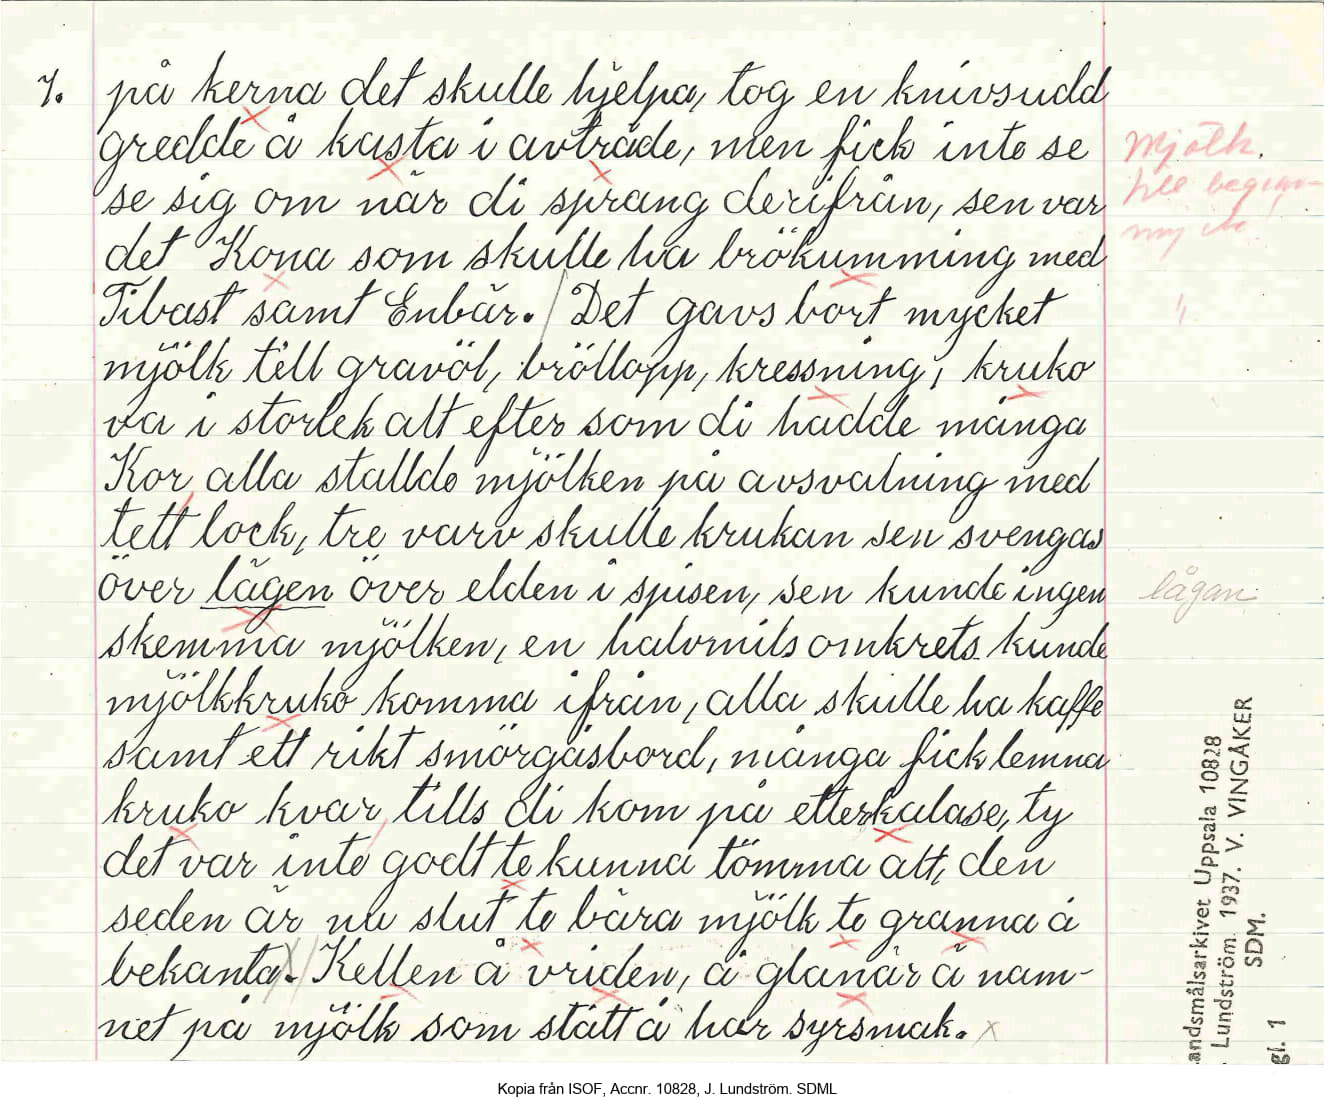 7. på kerna det skulle hjelpa, tog en knivsudd
gredde å kasta i avträde, men fick inte se
se sig om när di sprang derifrån, sen var
det Kona som skulle ha brökumming med
Tibast samt Enbär. / Det gavs bort mycket
mjölk till gravöl, bröllopp, kressning, kruko
va i storlek allt efter som di hadde många
Kor alla stalldo mjölken på avsvalning med
tett lock, tre varv skulle krukan sen svengas
över lågen över elden i spisen, sen kunde ingen
skemma mjölken, en halvmils omkrets kunde
mjölkkruko komma ifrån, alla skulle ha kaffe
samt ett rikt smörgåsbord, många fick lemna
kruko kvar tills di kom på etterkalase, ty
det var inte godt te kunna tömma allt, den
seden är nu slut te bära mjölk te granna å
bekanta. // Kellen å vriden, å glanär å nam-
net på mjölk som stått å har syrsmak. x
Mjölk.
till
lågan
Landsmålsarkivet Uppsala 10828
Lundström. 1937. V. VINGÅKER
SDM.
gl. 1
Kopia från ISOF, Accnr. 10828, J. Lundström. SDML